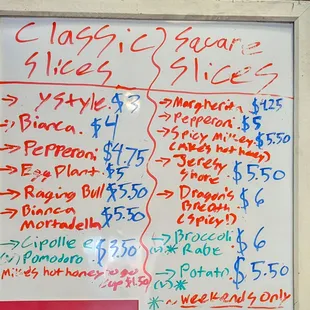 Classic Slices
→ NYstyle. $3
→ Bianca. $4
→ Pepperoni $4.75
→ Egg Plant. $5
→ Raging Bull $5.50
→ Bianca Mortadella $5.50
→ Cipolle e $3.50
(v) Pomodoro
Mike's hot honey to go
cup $1.50
Square Slices
→ Margherita $4.25
→ Pepperoni $5
→ Spicy Mikey $5.50
(Mike's hot honey)
→ Jeresy Shore $5.50
→ Dragon's Breath $6
(Spicy!)
→ Broccoli Rabe $6
(v)*
→ Potato $5.50
(v)*
* ~ weekends only